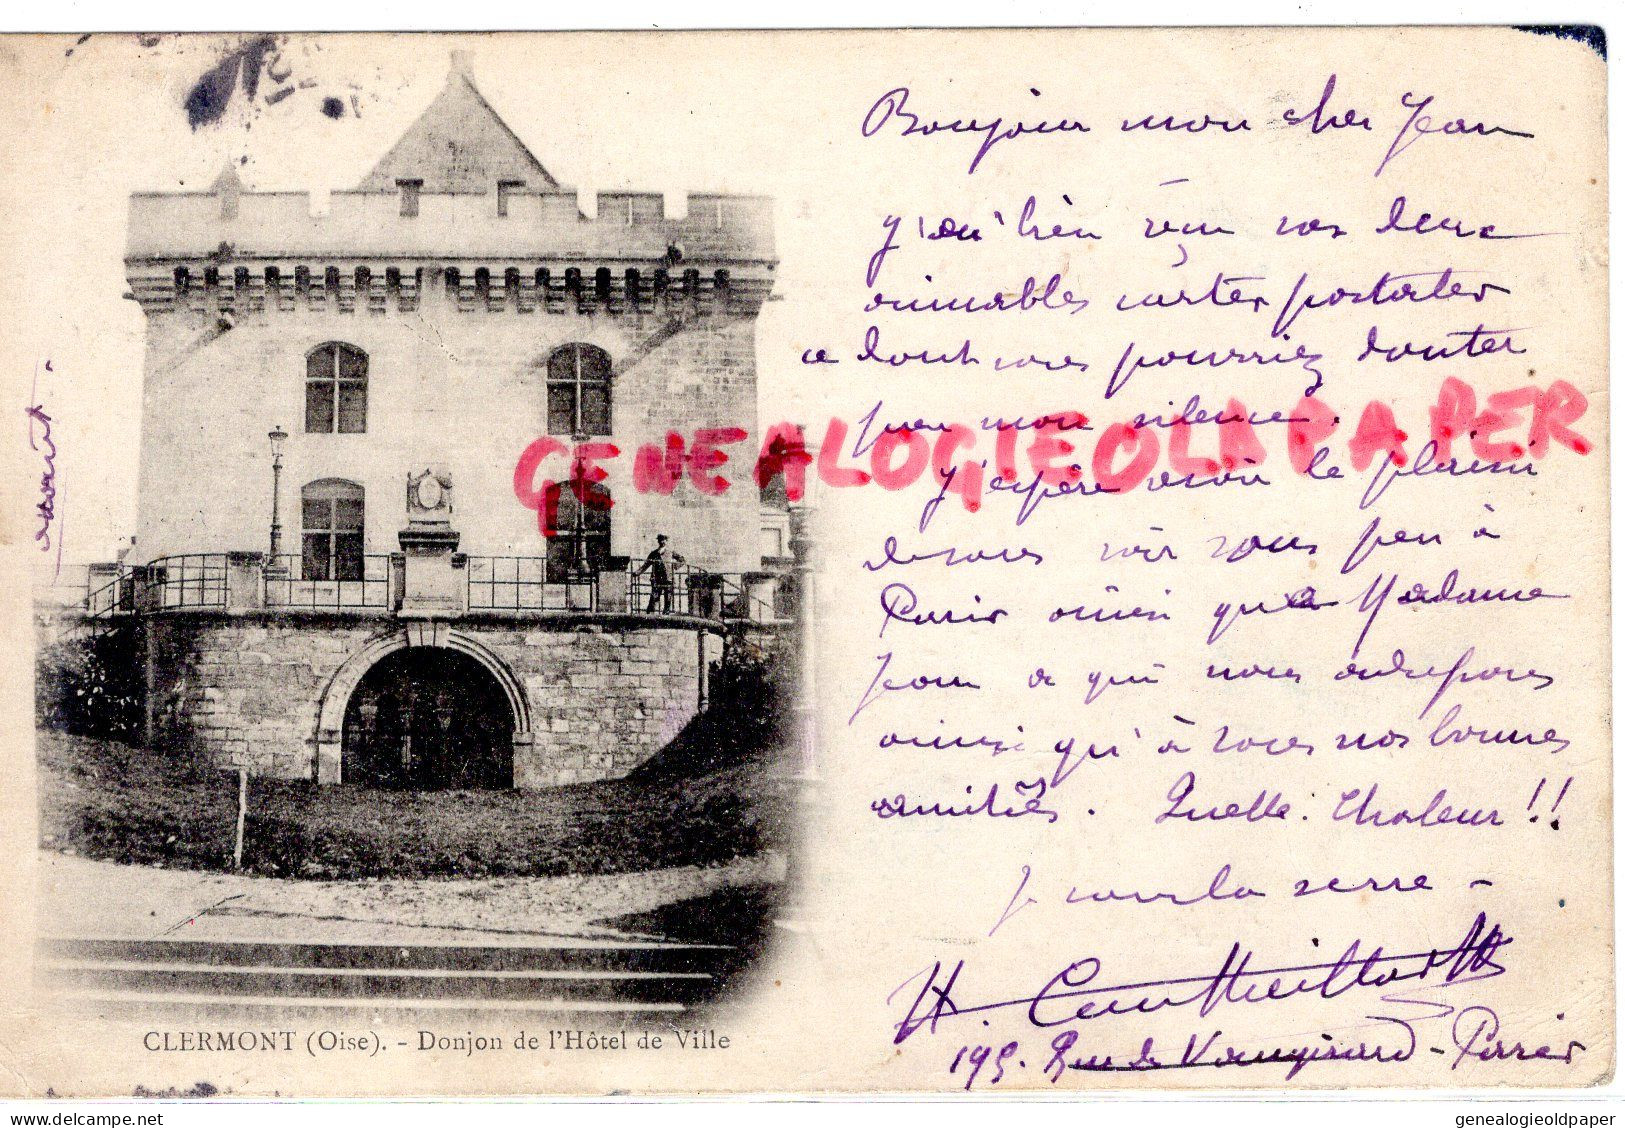 Bonjour mon cher Jean
J'ai bien reçu vos deux
aimables cartes postales
ce dont vous pourriez douter
par mon silence.
GENEALOGIEOLDPAPER
J'espère avoir le plaisir
de vous voir sous peu à
Paris ainsi que Madame
Jean à qui nous
ainsi qu'à vous nos bonnes
amitiés. Quelle Chaleur!!
Je vous la serre -
H.
195. Rue de Vaugirard - Paris
août.
CLERMONT (Oise). - Donjon de l'Hôtel de Ville
genealogieoldpaper